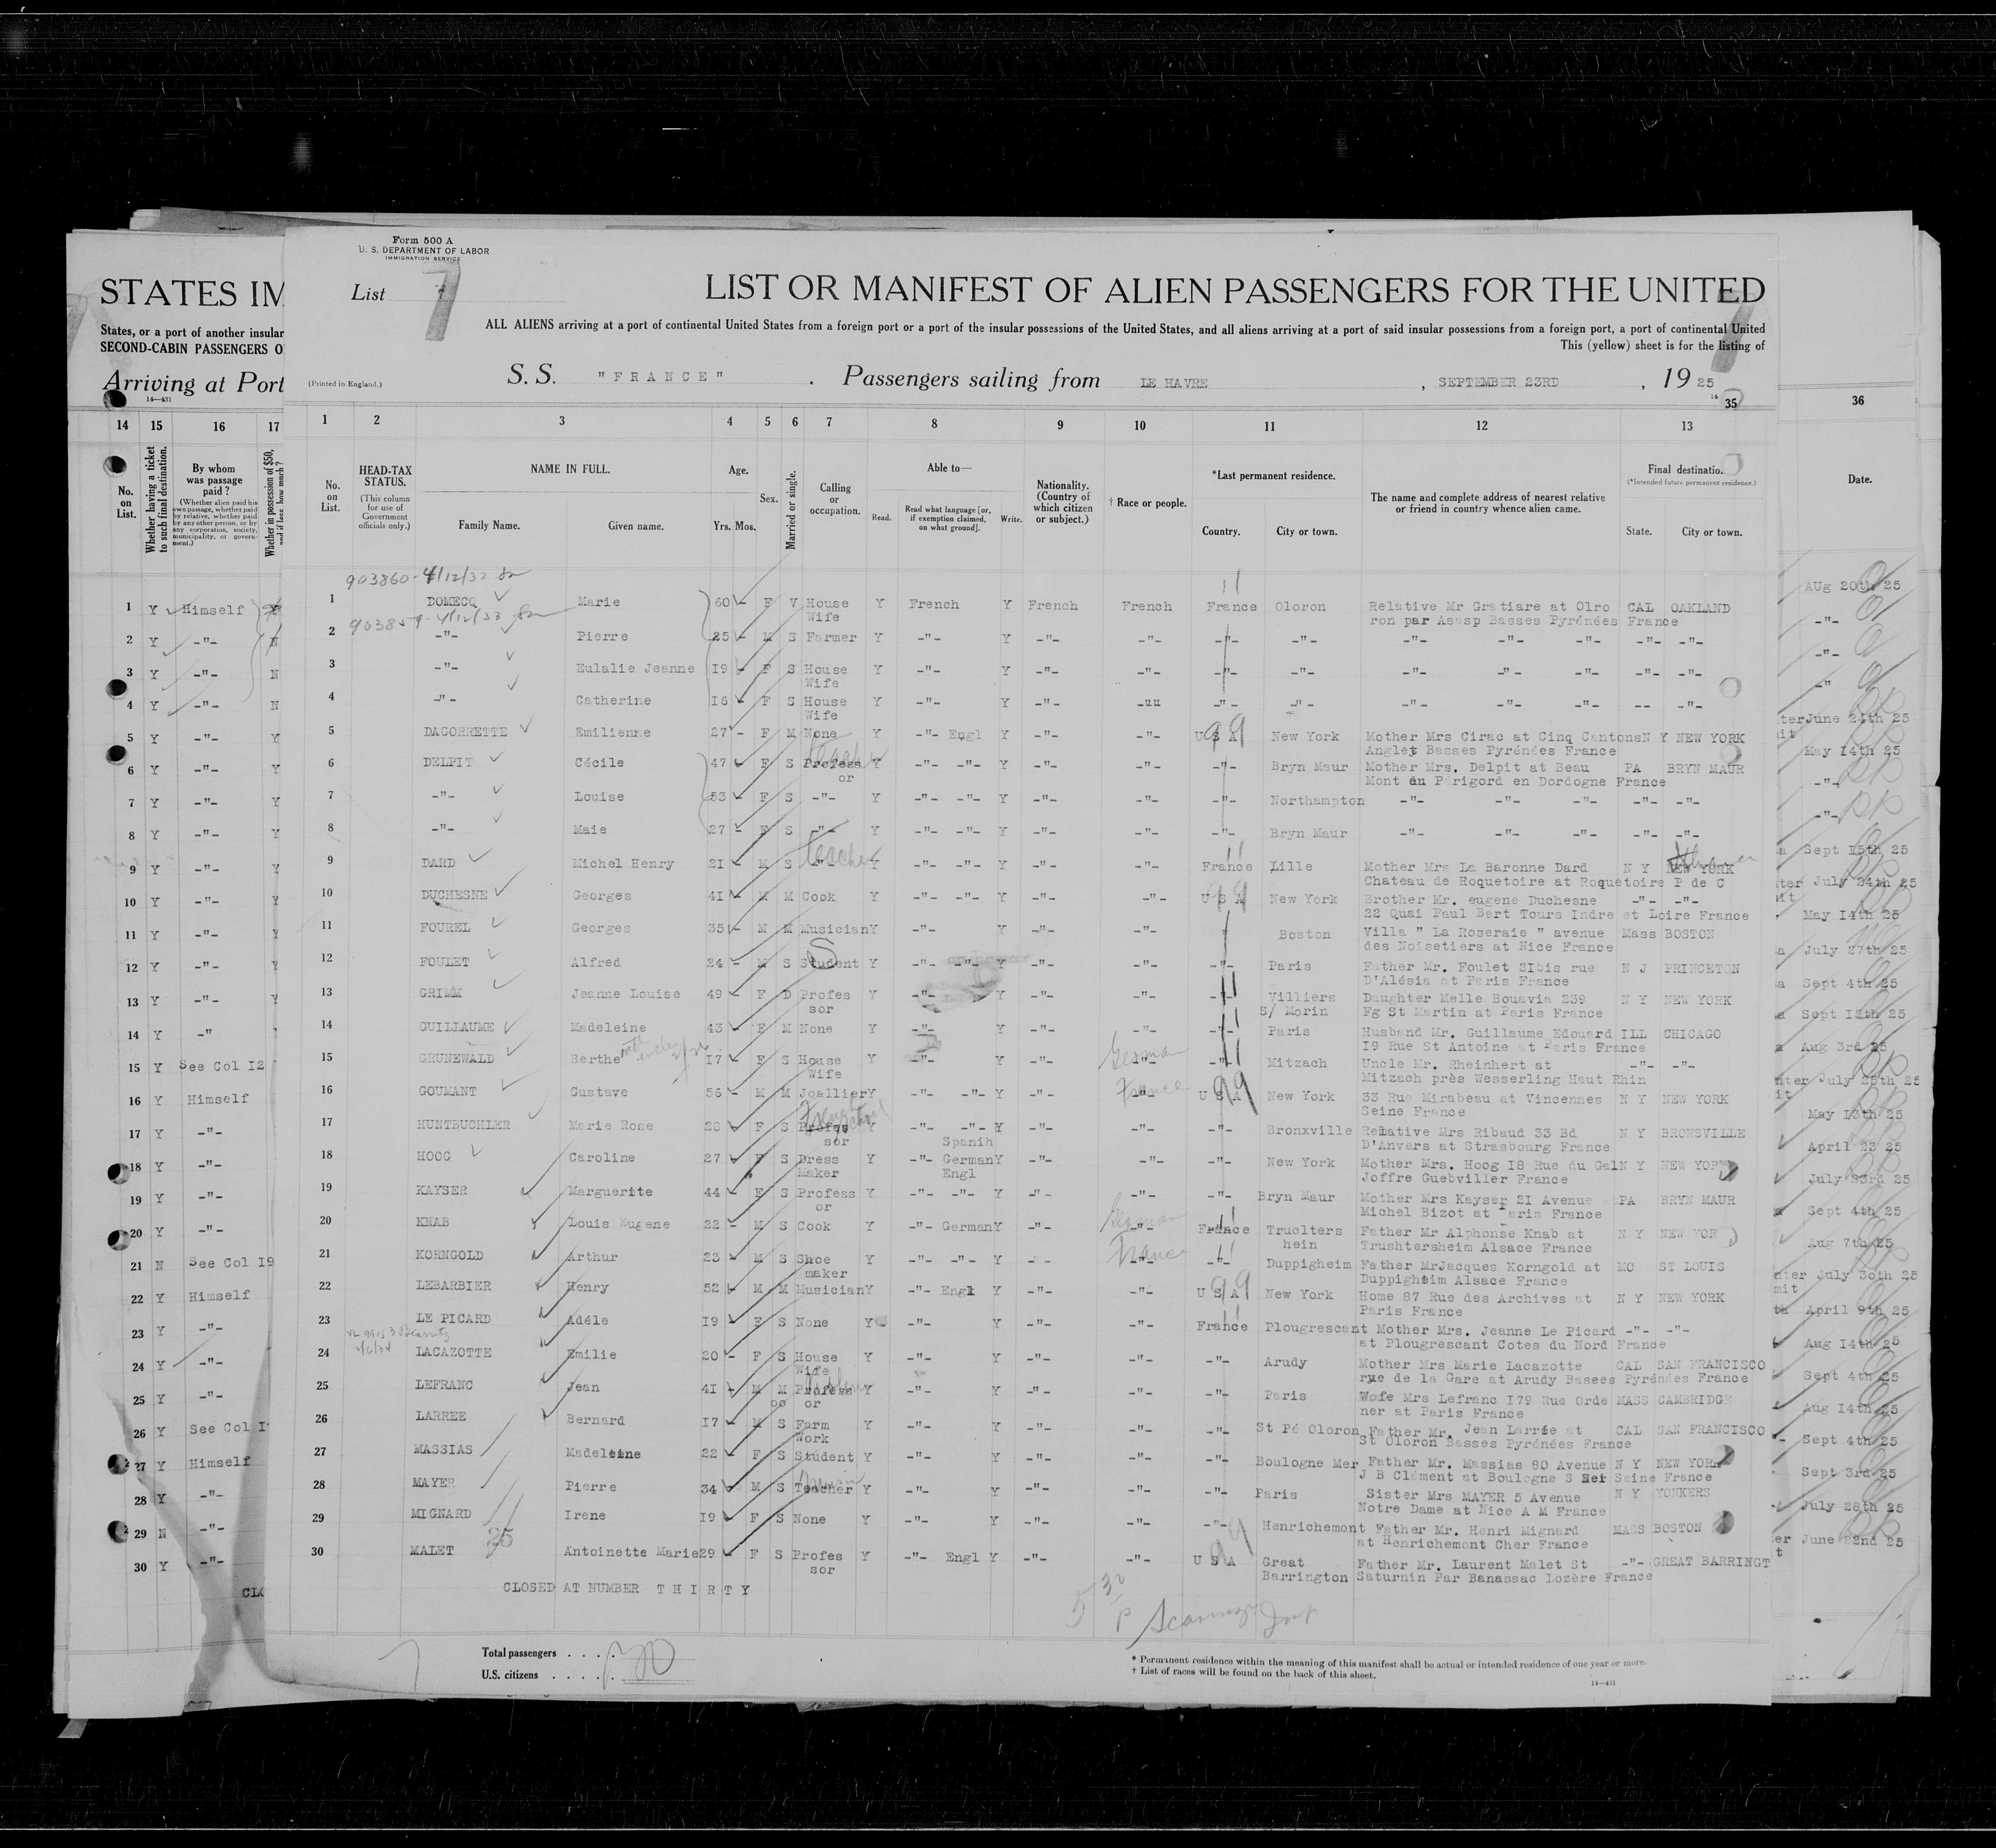 Form 500 A
U. S. DEPARTMENT OF LABOR
IMMIGRATION SERVICE
List 7
LIST OR MANIFEST OF ALIEN PASSENGERS FOR THE UNITED
ALL ALIENS arriving at a port of continental United States from a foreign port or a port of the insular possessions of the United States, and all aliens arriving at a port of said insular possessions from a foreign port, a port of continental United
This (yellow) sheet is for the listing of
(Printed in England.)
S. S. "FRANCE" . Passengers sailing from LE HAVRE , SEPTEMBER 23RD , 19 25
STATES IM
States, or a port of another insular
SECOND-CABIN PASSENGERS O
Arriving at Port
14—431
14 15 16 17 1 2 3 4 5 6 7 8 9 10 11 12 13 35 36
No. on List.
Whether having a ticket to such final destination.
By whom was passage paid?
(Whether alien paid his own passage, whether paid by relative, whether paid by any other person, or by any corporation, society, municipality, or government.)
Whether in possession of $50, and if less, how much?
No. on List.
HEAD-TAX STATUS.
(This column for use of Government officials only.)
NAME IN FULL.
Family Name. Given name.
Age.
Yrs. Mos.
Sex.
Married or single.
Calling or occupation.
Able to—
Read. Read what language [or, if exemption claimed, on what ground]. Write.
Nationality. (Country of which citizen or subject.)
† Race or people.
*Last permanent residence.
Country. City or town.
The name and complete address of nearest relative or friend in country whence alien came.
Final destination.
(*Intended future permanent residence.)
State. City or town.
Date.
903860-4/12/33
1 DOMECQ Marie 60 F V House Wife Y French Y French French France Oloron Relative Mr Gratiare at Olro CAL OAKLAND
ron par Asasp Basses Pyrénées France
2 -"- Pierre 25 M S Farmer Y -"- Y -"- -"- -"- -"- -"- -"- -"- -"- -"-
3 -"- Eulalie Jeanne I9 F S House Wife Y -"- Y -"- -"- -"- -"- -"- -"- -"- -"- -"-
4 -"- Catherine I6 F S House Wife Y -"- Y -"- -"- -"- -"- -"- -"- -"- -- -"-
5 DAGORRETTE Emilienne 27 F M None Y -"- Engl Y -"- -"- U S A New York Mother Mrs Cirac at Cinq Cantons N Y NEW YORK
Anglet Basses Pyrénées France
6 DELPIT Cécile 47 F S Profess or Y -"- -"- Y -"- -"- -"- Bryn Maur Mother Mrs. Delpit at Beau PA BRYN MAUR
Mont du Périgord en Dordogne France
7 -"- Louise 53 F S -"- Y -"- -"- Y -"- -"- -"- Northampton -"- -"- -"- -"- -"-
8 -"- Maie 27 F S -"- Y -"- -"- Y -"- -"- -"- Bryn Maur -"- -"- -"- -"- -"-
9 DARD Michel Henry 2I M S -"- teacher Y -"- -"- Y -"- -"- France Lille Mother Mrs La Baronne Dard N Y NEW YORK
Chateau de Roquetoire at Roquetoire P de C
10 DUCHESNE Georges 4I M M Cook Y -"- -"- Y -"- -"- U S A New York Brother Mr. eugene Duchesne -"- -"-
22 Quai Paul Bert Tours Indre et Loire France
11 FOUREL Georges 35 M M Musician Y -"- Y -"- -"- Boston Villa " La Roseraie " avenue Mass BOSTON
des Noisetiers at Nice France
12 FOULET Alfred 24 M S Student Y -"- -"- Y -"- -"- -"- Paris Father Mr. Foulet 2Ibis rue N J PRINCETON
D'Alésia at Paris France
13 GRIMM Jeanne Louise 49 F D Profes sor Y -"- Y -"- -"- -"- Villiers S/ Morin Daughter Melle Bouavia 239 N Y NEW YORK
Fg St Martin at Paris France
14 GUILLAUME Madeleine 43 F M None Y -"- Y -"- -"- -"- Paris Husband Mr. Guillaume Edouard ILL CHICAGO
I9 Rue St Antoine at Paris France
15 GRUNEWALD Berthe I7 F S House Wife Y -"- Y -"- German -"- Mitzach Uncle Mr. Rheinhert at -"- -"-
Mitzach près Wesserling Haut Rhin
16 GOUMANT Gustave 56 M M Joallier Y -"- -"- Y -"- France U S A New York 33 Rue Mirabeau at Vincennes N Y NEW YORK
Seine France
17 HUNTBUCHLER Marie Rose 28 F S Profes sor Y -"- -"- Y Spanih -"- -"- -"- Bronxville Relative Mrs Ribaud 33 Bd N Y BRONSVILLE
D'Anvers at Strasbourg France
18 HOOG Caroline 27 F S Dress Maker Y -"- German Engl Y -"- -"- -"- New York Mother Mrs. Hoog I8 Rue du Gal N Y NEW YORK
Joffre Guebviller France
19 KAYSER Marguerite 44 F S Profess or Y -"- -"- Y -"- -"- -"- Bryn Maur Mother Mrs Kayser 2I Avenue PA BRYN MAUR
Michel Bizot at Paris France
20 KNAB Louis Eugene 22 M S Cook Y -"- German Y -"- German France Truclters hein Father Mr Alphonse Knab at N Y NEW YOR
Trushtersheim Alsace France
21 KORNGOLD Arthur 23 M S Shoe maker Y -"- -"- Y - - France -"- Duppigheim Father MrJacques Korngold at MO ST LOUIS
Duppigheim Alsace France
22 LEBARBIER Henry 52 M M Musician Y -"- Engl Y -"- -"- U S A New York Home 87 Rue des Archives at N Y NEW YORK
Paris France
23 LE PICARD Adéle I9 F S None Y -"- Y -"- -"- France Plougrescant Mother Mrs. Jeanne Le Picard -"- -"-
at Plougrescant Cotes du Nord France
24 LACAZOTTE Emilie 20 F S House Wife Y -"- Y -"- -"- -"- Arudy Mother Mrs Marie Lacazotte CAL SAN FRANCISCO
rue de la Gare at Arudy Basses Pyrénées France
25 LEFRANC Jean 4I M M Profess or Y -"- Y -"- -"- -"- Paris Wofe Mrs Lefranc I79 Rue Orde MASS CAMBRIDGE
ner at Paris France
26 LARREE Bernard I7 M S Farm Work Y -"- Y -"- -"- -"- St Pé Oloron Father Mr. Jean Larrée at CAL SAN FRANCISCO
St Oloron Basses Pyrénées France
27 MASSIAS Madeleine 22 F S Student Y -"- Y -"- -"- -"- Boulogne Mer Father Mr. Massias 80 Avenue N Y NEW YORK
J B Clément at Boulogne S Sei Seine France
28 MAYER Pierre 34 M S Teacher Y -"- Y -"- -"- -"- Paris Sister Mrs MAYER 5 Avenue N Y YONKERS
Notre Dame at Nice A M France
29 MIGNARD Irene I9 F S None Y -"- Y -"- -"- -"- Henrichemont Father Mr. Henri Mignard MASS BOSTON
at Henrichemont Cher France
30 MALET Antoinette Marie 29 F S Profes sor Y -"- Engl Y -"- -"- U S A Great Barrington Father Mr. Laurent Malet St -"- GREAT BARRINGT
Saturnin Par Banassac Lozère France
CLOSED AT NUMBER THIRTY
Total passengers . . . . 30
U.S. citizens . . . . .
* Permanent residence within the meaning of this manifest shall be actual or intended residence of one year or more.
† List of races will be found on the back of this sheet.
14—431
1 Y Himself Y
2 Y -"- N
3 Y -"- N
4 Y -"- N
5 Y -"- Y
6 Y -"- Y
7 Y -"- Y
8 Y -"- Y
9 Y -"- Y
10 Y -"- Y
11 Y -"- Y
12 Y -"- Y
13 Y -"- Y
14 Y -"
15 Y See Col I2
16 Y Himself
17 Y -"-
18 Y -"-
19 Y -"-
20 Y -"-
21 N See Col I9
22 Y Himself
23 Y -"-
24 Y -"-
25 Y -"-
26 Y See Col I
27 Y Himself
28 Y -"-
29 N -"-
30 Y -"-
CLO
AUg 20th 25
-"-
-"-
-"
June 24th 25
May I4th 25
-"-
-"-
Sept I5th 25
July 24th 25
May I4th 25
July 27th 25
Sept 4th 25
Sept I2th 25
Aug 3rd 25
July 25th 25
May I3th 25
April 23 25
July 23rd 25
Sept 4th 25
Aug 7th 25
July 3oth 25
April 9th 25
Aug I4th 25
Sept 4th 25
Aug I4th 25
Sept 4th 25
Sept 3rd 25
July 28th 25
June 22nd 25